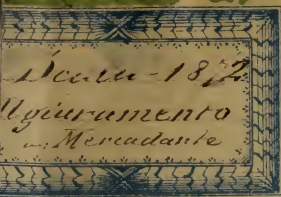 1872
Il giuramento
Mercadante